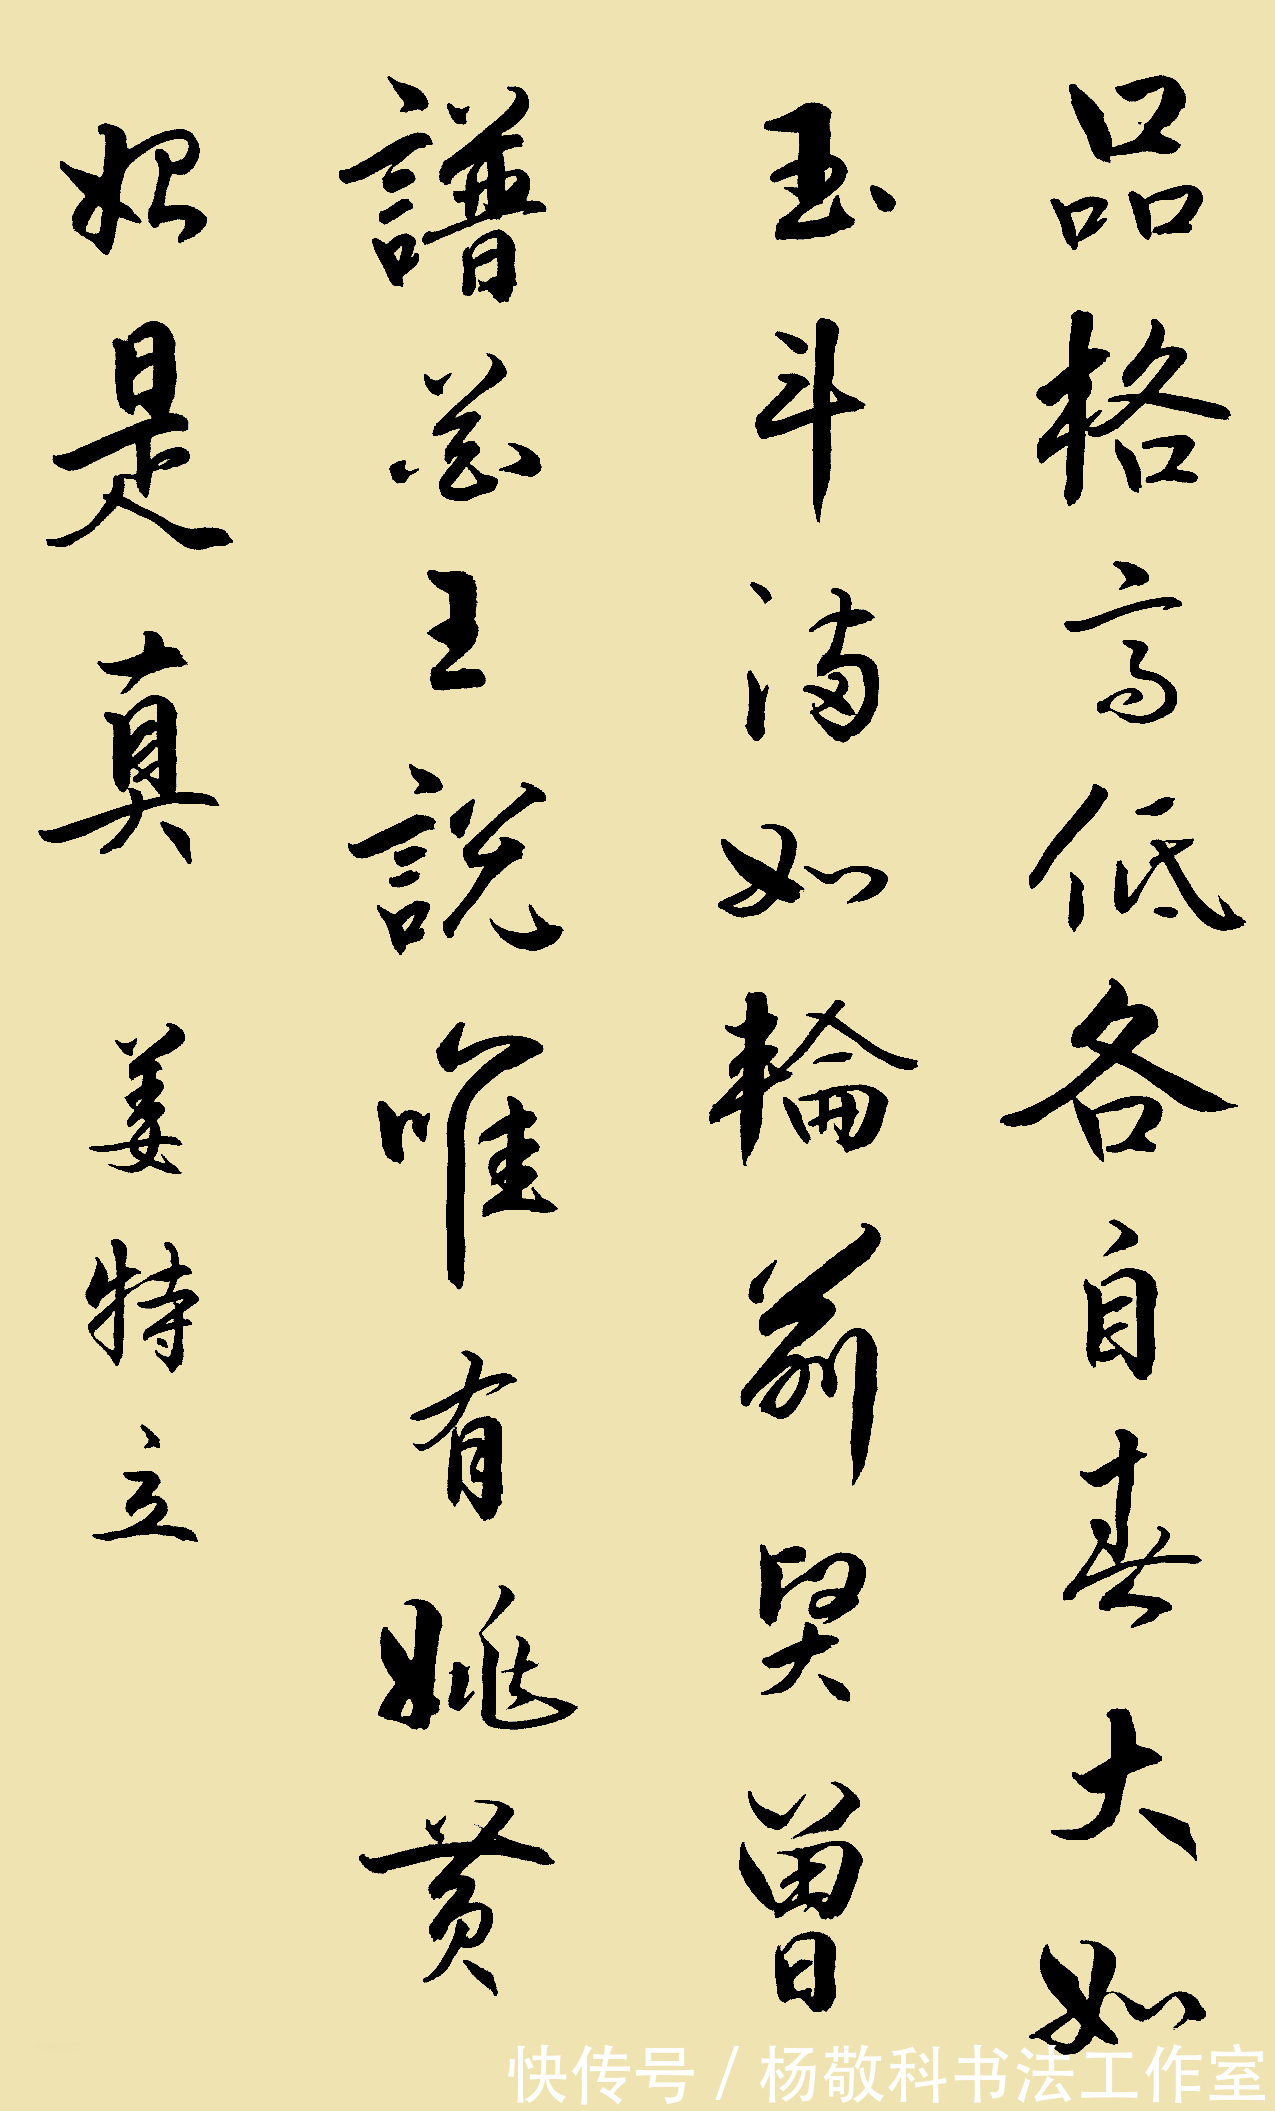 品格高低各自春大如
玉斗滿如輪前賢曾
譜花王說唯有姚黃
始是真 姜特立
快传号 / 杨敬科书法工作室